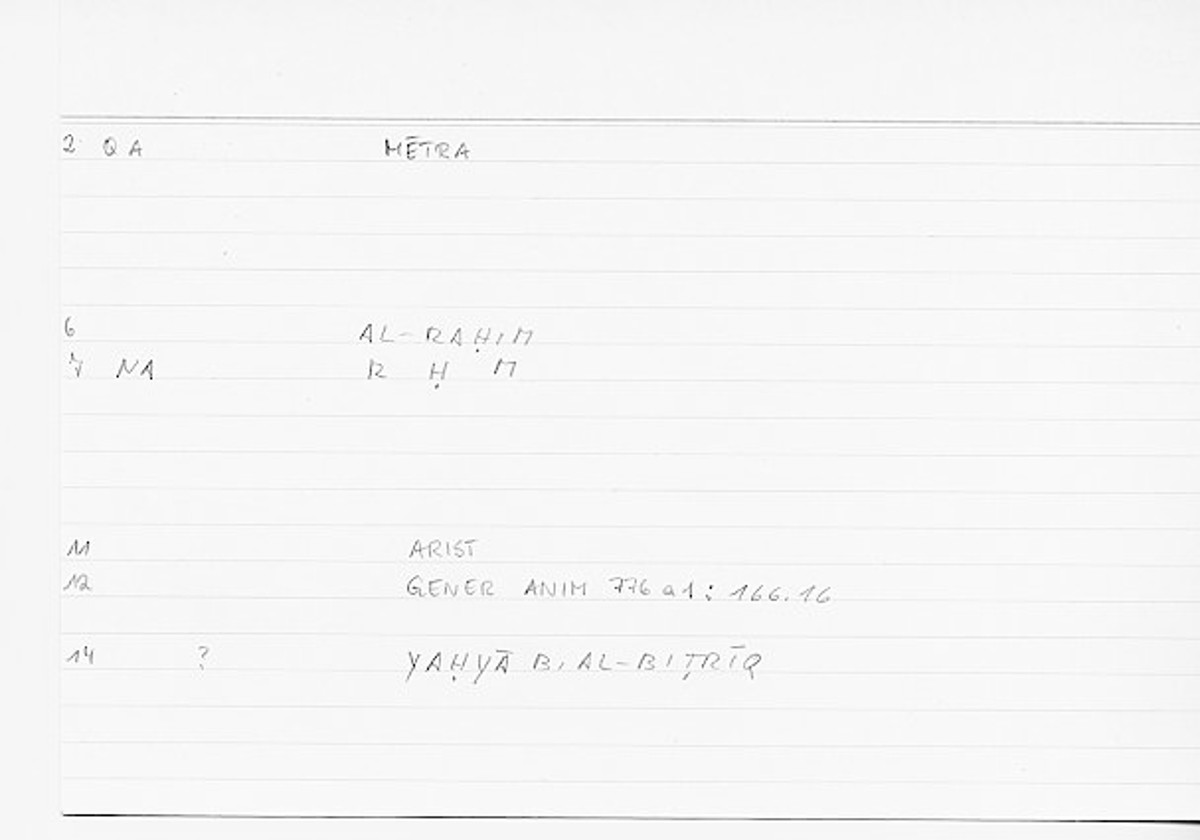 2 QA MĒTRA
6 AL-RAḤIM
7 NA R Ḥ M
11 ARIST
12 GENER ANIM 776 a1 : 166.16
14 ? YAḤYĀ B. AL-BIṬRĪQ